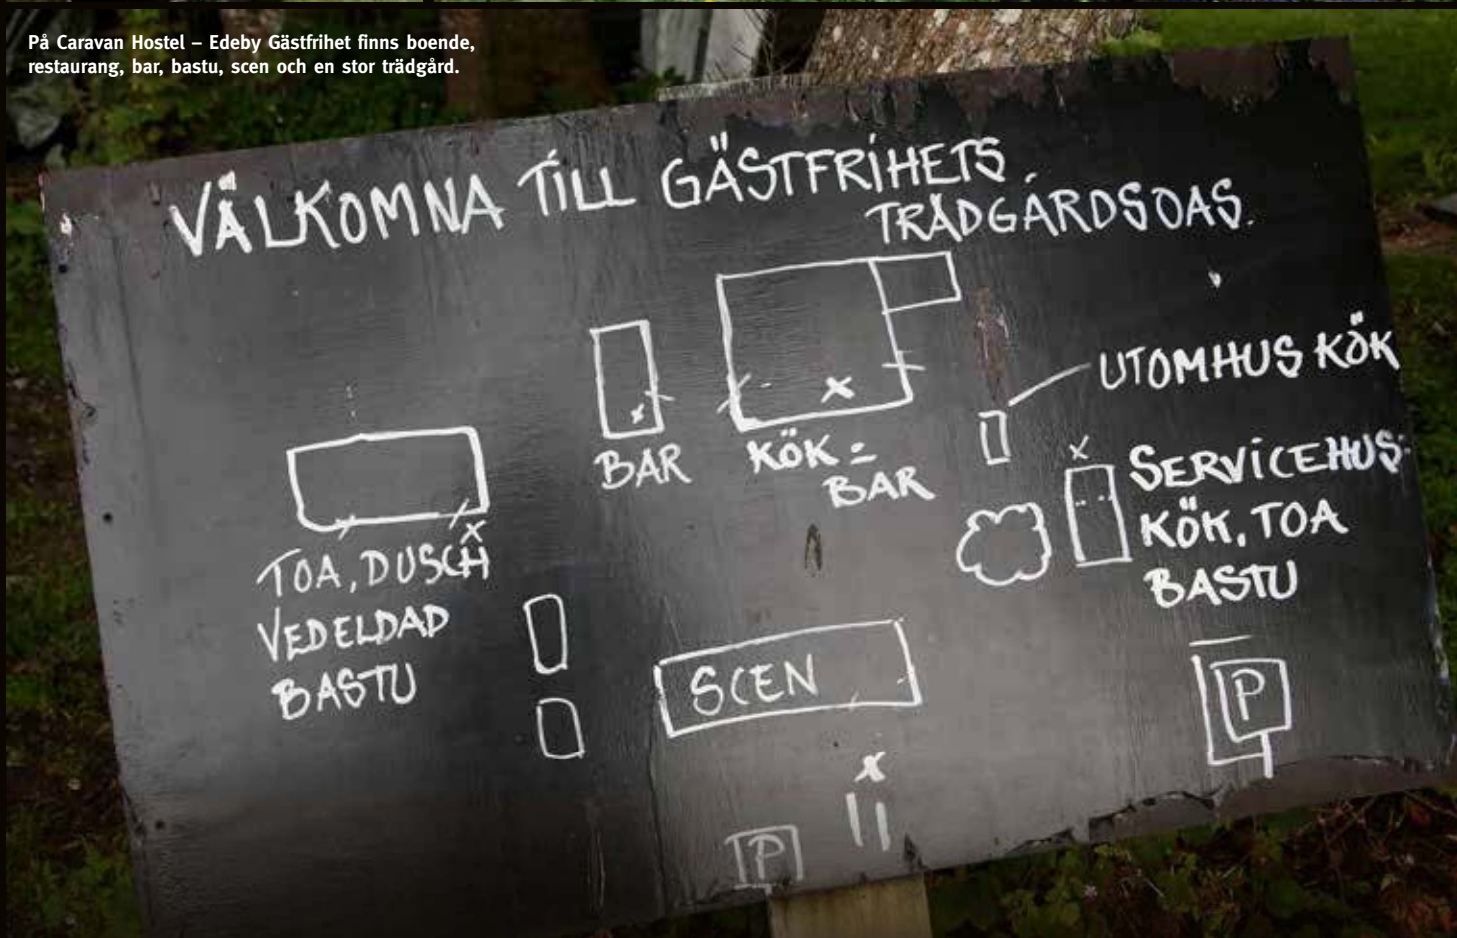 På Caravan Hostel – Edeby Gästfrihet finns boende,
restaurang, bar, bastu, scen och en stor trädgård.
VÄLKOMNA TILL GÄSTFRIHETS
TRÄDGÅRDSOAS.
UTOMHUS KÖK
BAR
KÖK =
BAR
SERVICEHUS:
KÖK, TOA
BASTU
TOA, DUSCH
VEDELDAD
BASTU
SCEN
P
P